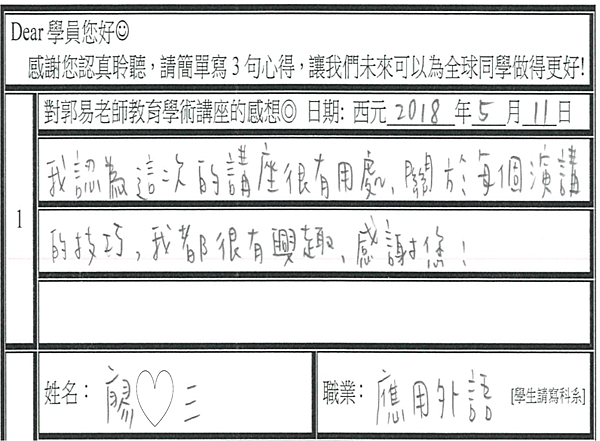 Dear 學員您好☺
感謝您認真聆聽，請簡單寫 3 句心得，讓我們未來可以為全球同學做得更好!
對郭易老師教育學術講座的感想◎ 日期: 西元 2018 年 5 月 11 日
1
我認為這次的講座很有用處、關於每個演講
的技巧，我都很有興趣、感謝您！
姓名： ♡三
職業： 應用外語 [學生請寫科系]